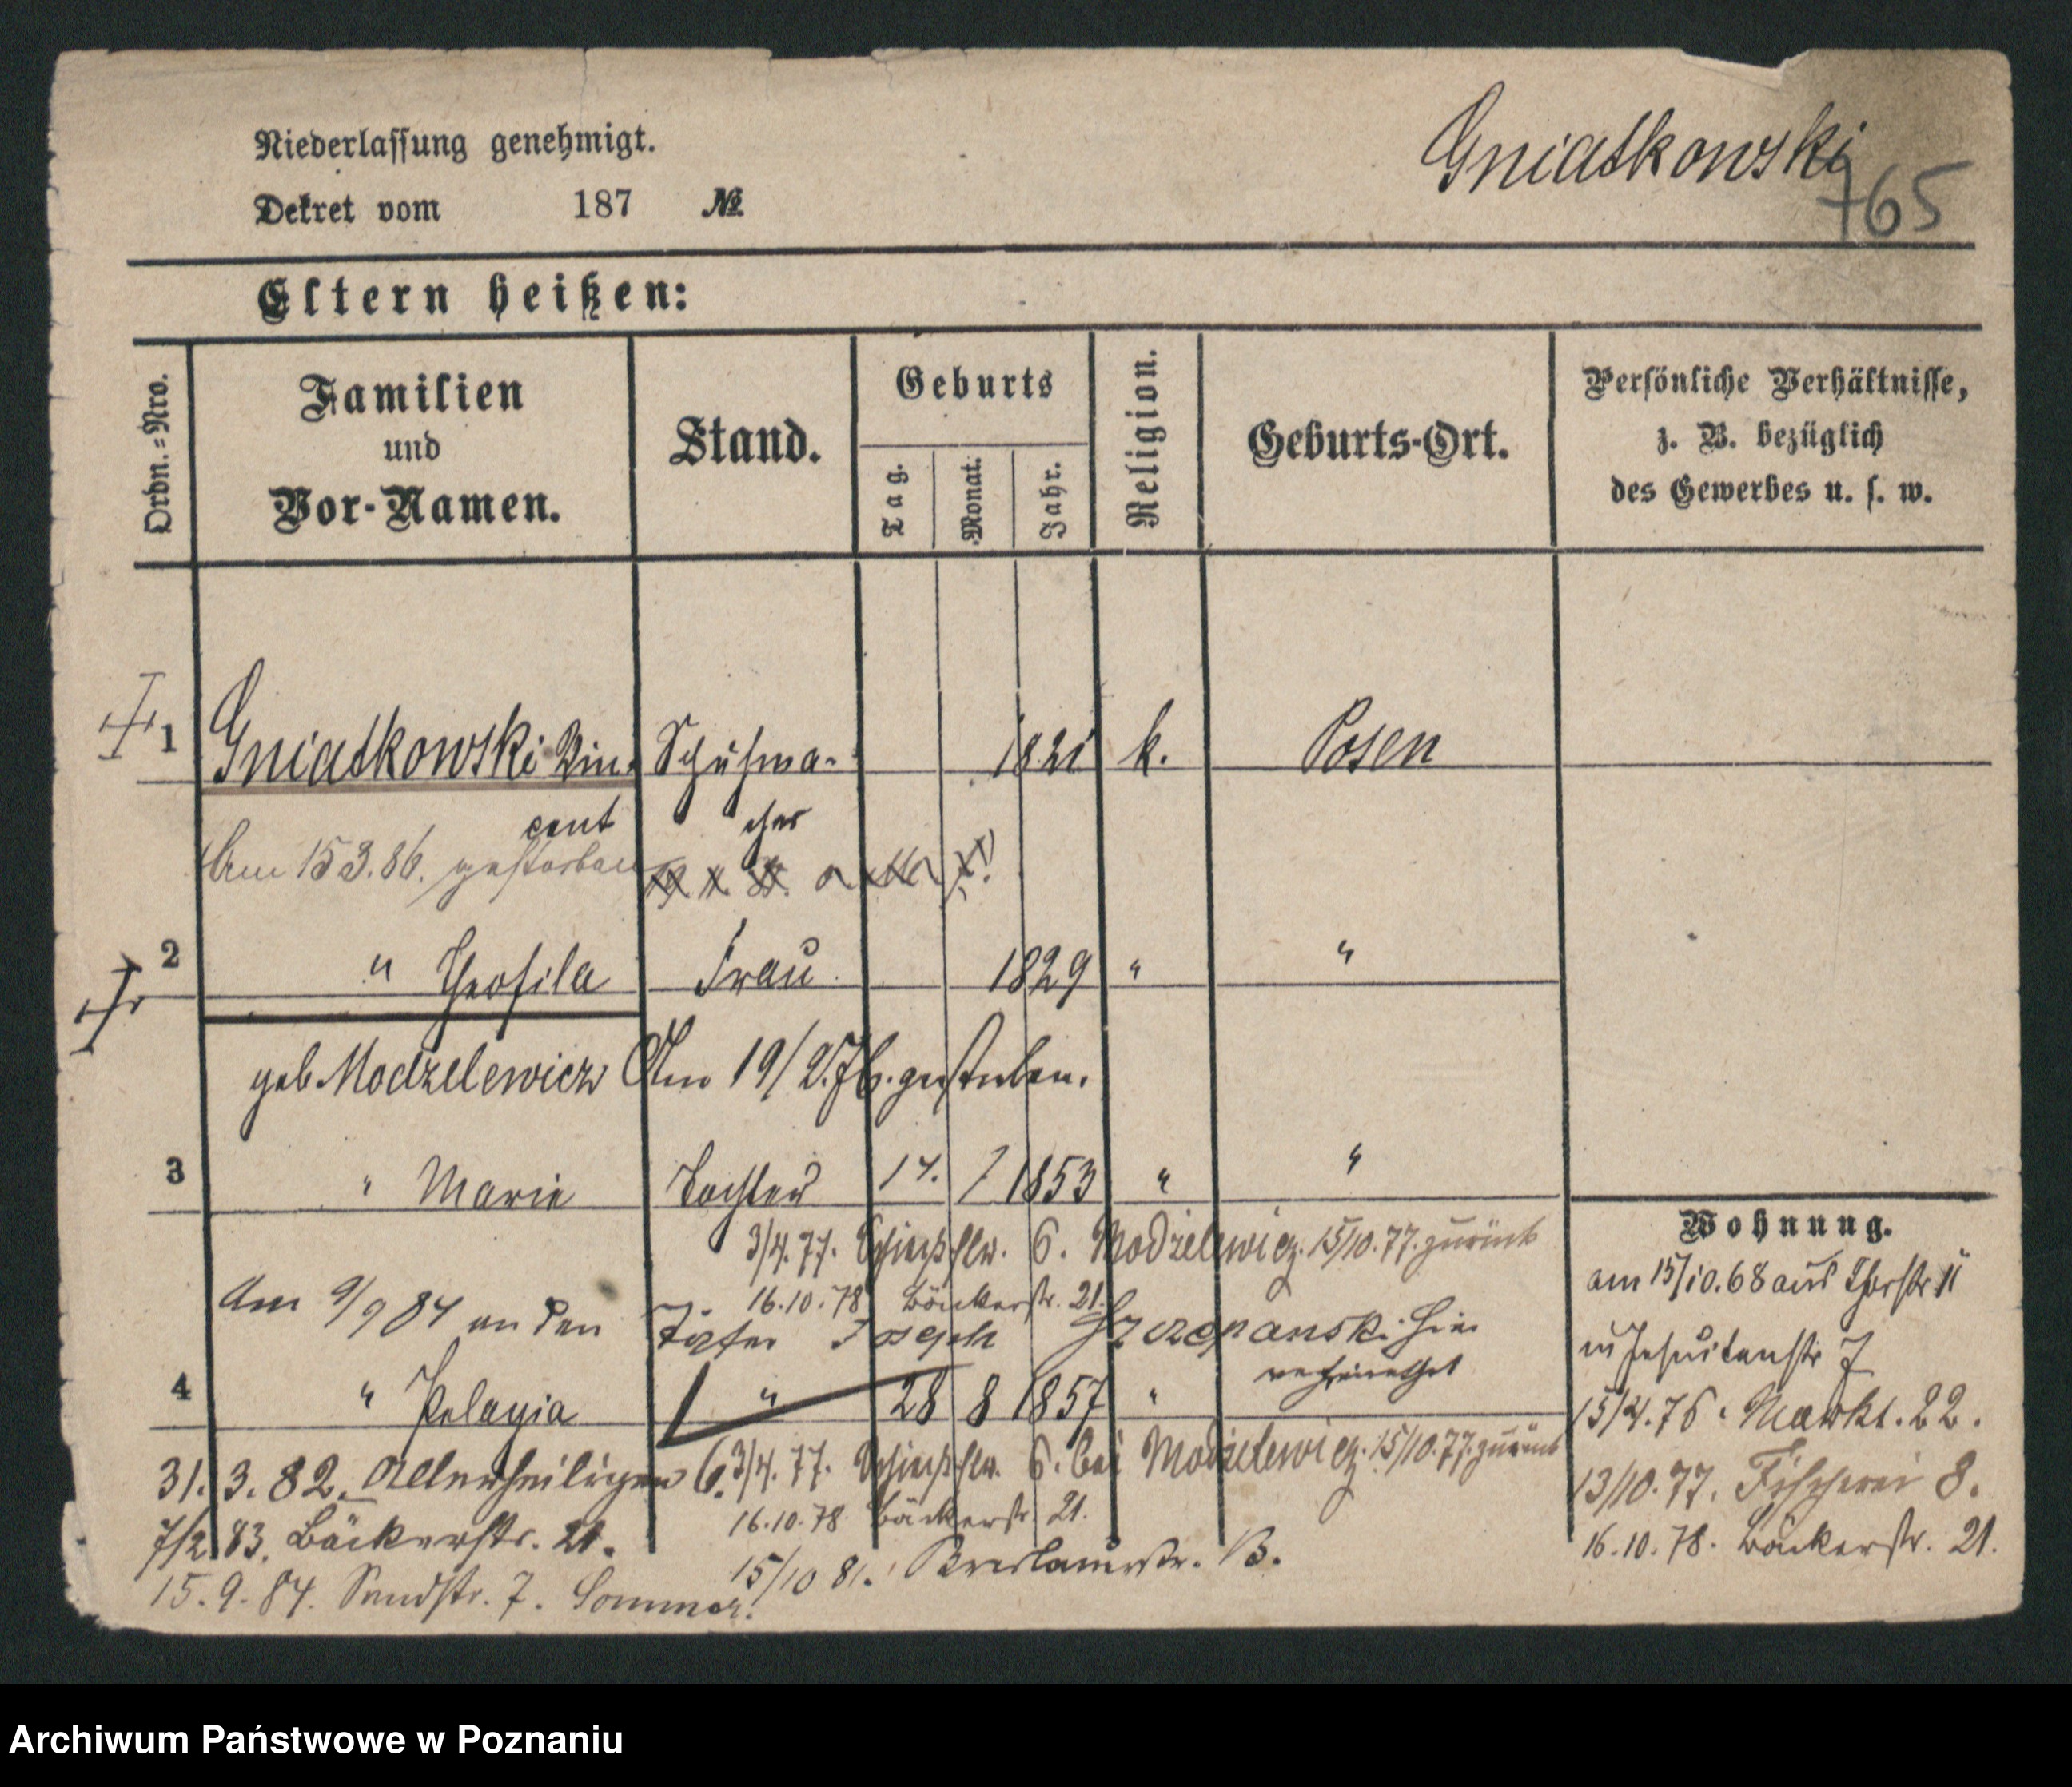 Niederlassung genehmigt.
Gniatkowski
765
Dekret vom 187 №
Eltern heißen:
Ordn.-Nro.
Familien
und
Vor-Namen.
Stand.
Geburts
Tag.
Monat.
Jahr.
Religion.
Geburts-Ort.
Persönliche Verhältnisse,
z. B. bezüglich
des Gewerbes u. s. w.
1 Gniatkowski Vin- Schuhma- 1821 k. Posen
cent cher
Am 15 3. 86. gestorben
2 " Theofila Frau 1829 " "
geb. Modzelewicz Am 19/2. 76. gestorben.
3 " Marie Tochter 17. 7 1853 " "
3/4. 77. 6. Modzelewicz. 15/10. 77. zurück
16.10.78 Bäckerstr. 21.
Am 9/9 84 an den Töpfer Joseph Szczepanski hier
verheirathet
4 " Pelagia " 28 8 1857 "
3/4. 77. 6. bei Modzelewicz. 15/10. 77. zurück
31. 3. 82. Allerheiligen 6.
16.10.78 Bäckerstr. 21.
7/2 83. Bäckerstr. 21.
15/10 81. Breslauerstr.
15. 9. 84. Sandstr. 7. Sommer.
Wohnung.
am 15/10. 68 aus Thorstr. 11
in Jesuitenstr 7
15/4. 76. Markt. 22.
13/10. 77. Fischerei 8.
16.10.78. Bäckerstr. 21.
Archiwum Państwowe w Poznaniu